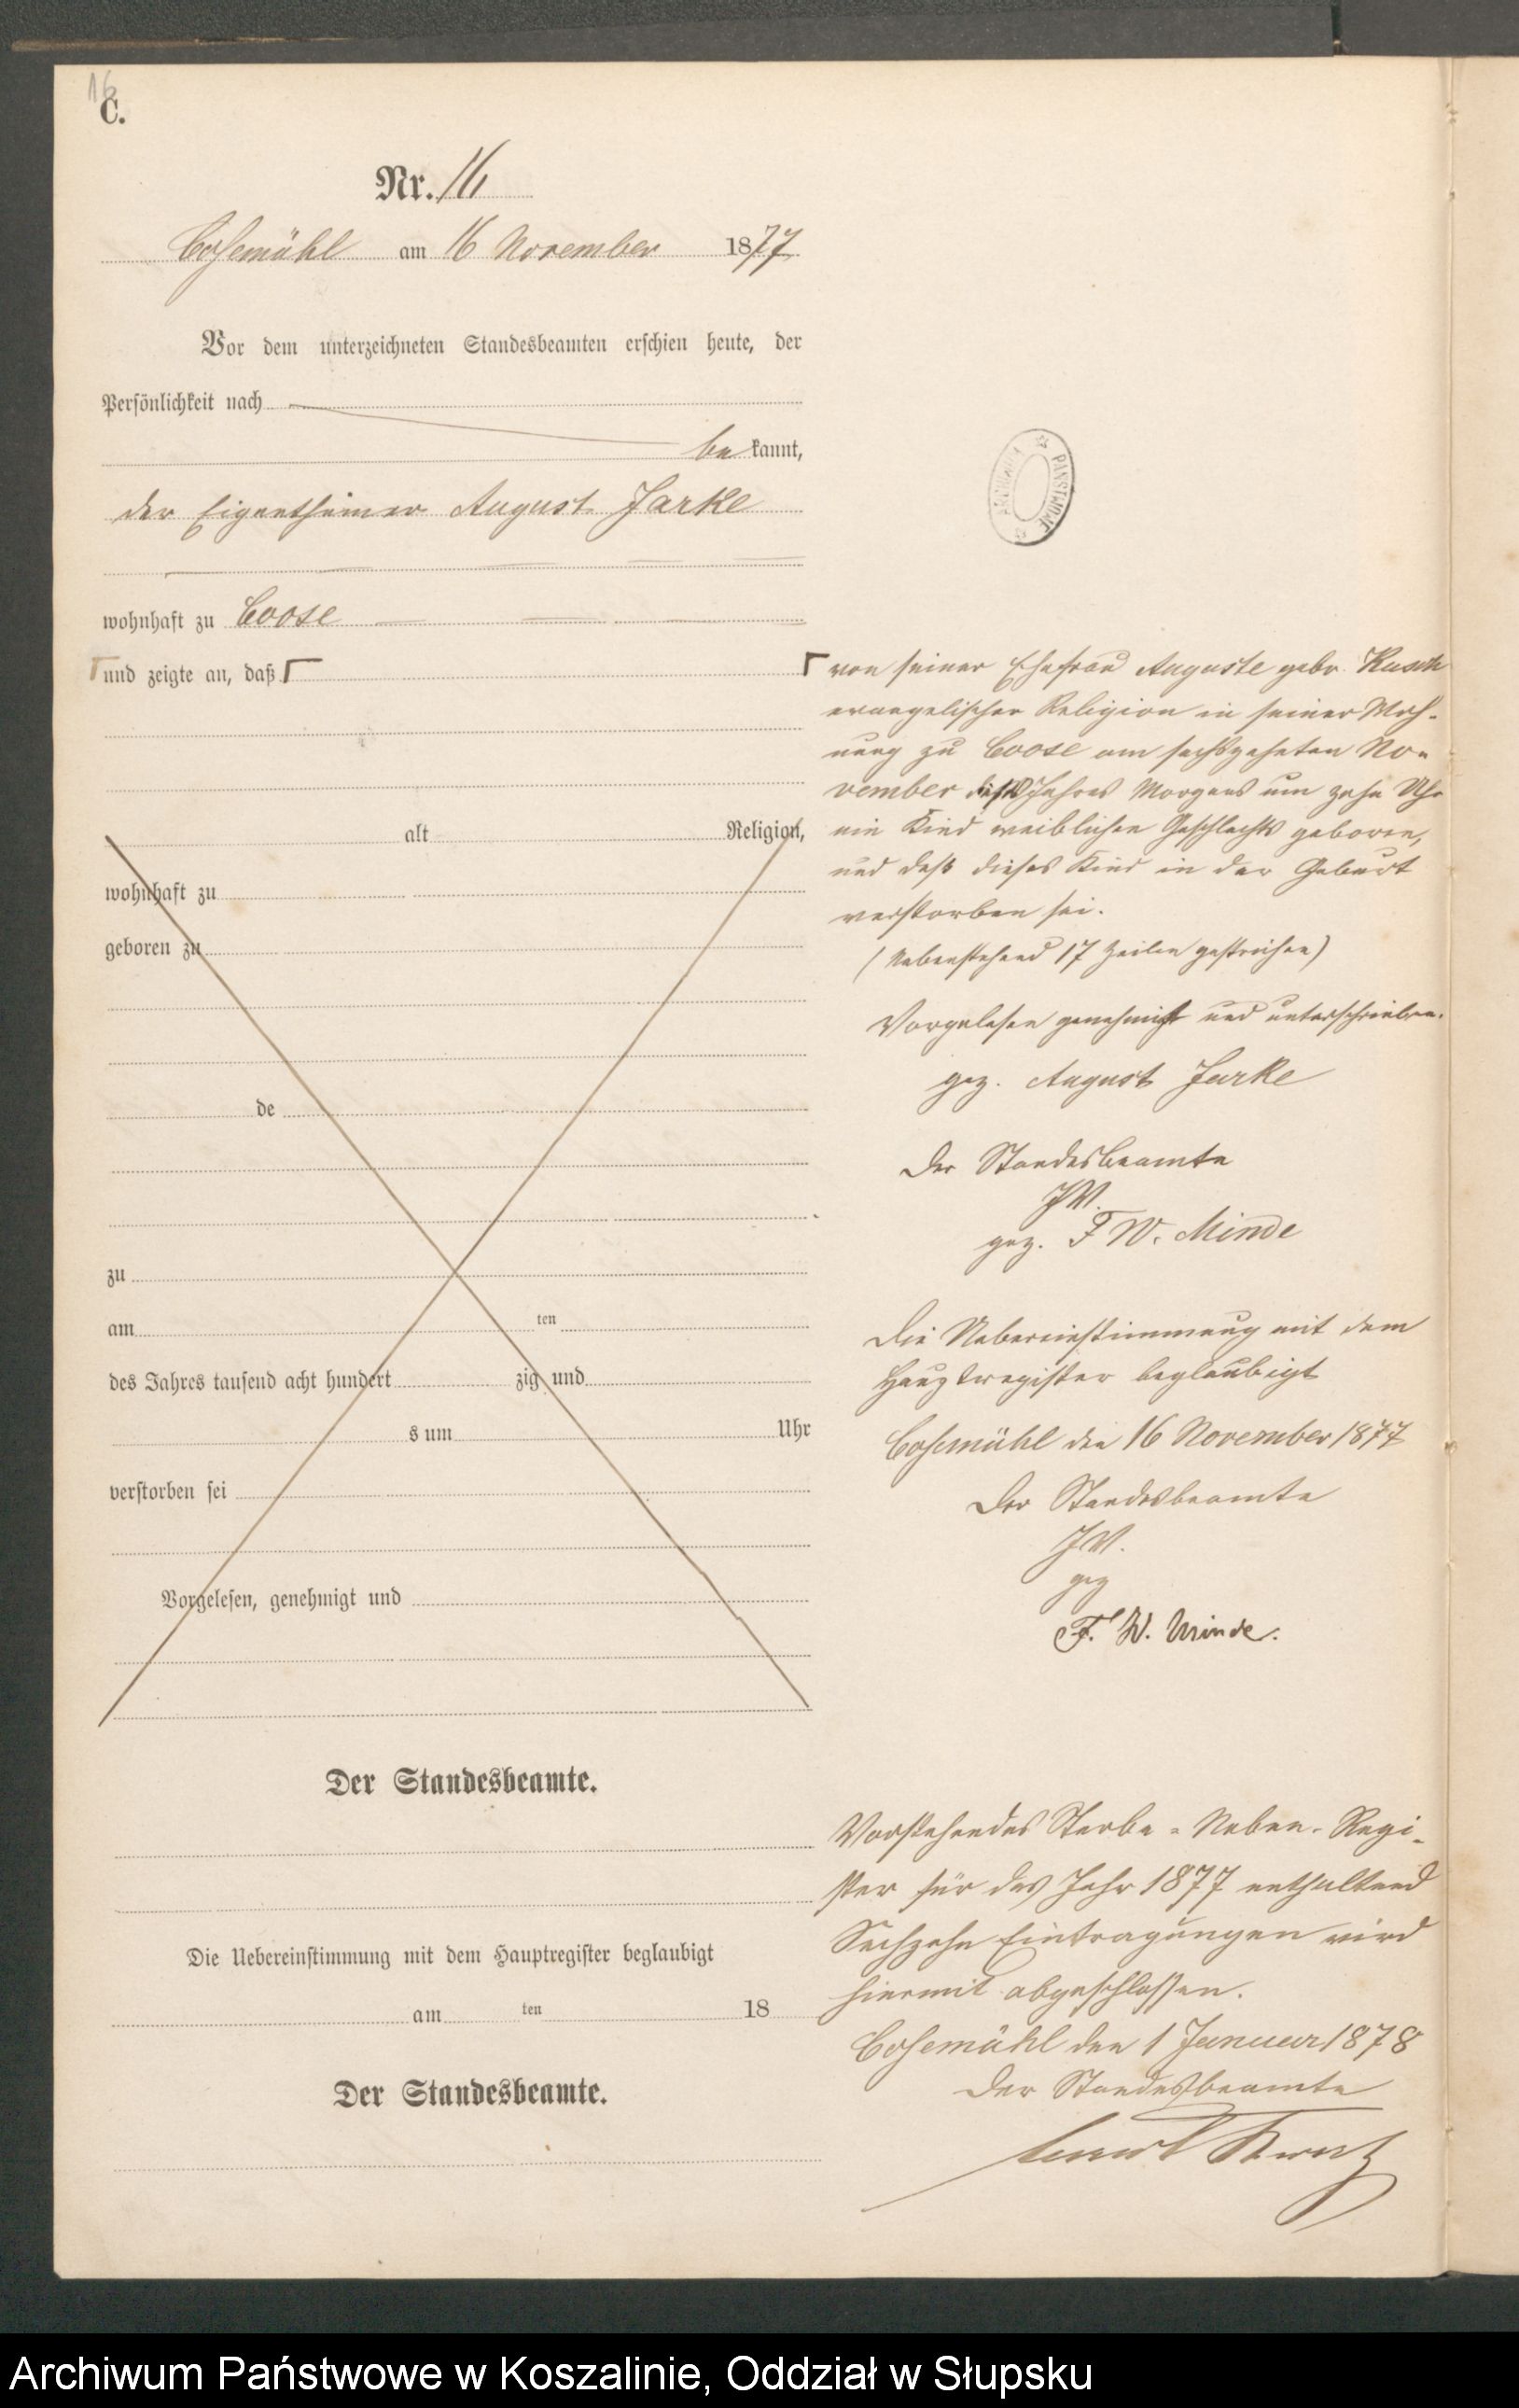 16
C.
Nr. 16
Cosemühl am 16 November 1877
Vor dem unterzeichneten Standesbeamten erschien heute, der
Persönlichkeit nach
be kannt,
der Eigenthümer August Jarke
wohnhaft zu Coose
und zeigte an, daß
alt Religion,
wohnhaft zu
geboren zu
de
zu
am ten
des Jahres tausend acht hundert zig und
s um Uhr
verstorben sei
Vorgelesen, genehmigt und
Der Standesbeamte.
Die Uebereinstimmung mit dem Hauptregister beglaubigt
am ten 18
Der Standesbeamte.
ARCHIWUM PAŃSTWOWE
von seiner Ehefrau Auguste gebr.
evangelischer Religion in seiner Woh-
nung zu Coose am sechszehnten No-
vember dieses Jahres Morgens um zehn Uhr
ein Kind weiblichen Geschlechts geboren,
und daß dieses Kind in der Geburt
verstorben sei.
(Nebenstehend 17 Zeilen gestrichen)
Vorgelesen genehmigt und unterschrieben.
gez. August Jarke
Der Standesbeamte
J.V.
gez. F W. Minde
Die Uebereinstimmung mit dem
Hauptregister beglaubigt
Cosemühl den 16 November 1877
Der Standesbeamte
J.V.
gez
F. W. Minde.
Vorstehendes Sterbe-Neben-Regi-
ster für das Jahr 1877 enthaltend
Sechzehn Eintragungen wird
hiermit abgeschlossen.
Cosemühl den 1 Januar 1878
Der Standesbeamte
Archiwum Państwowe w Koszalinie, Oddział w Słupsku